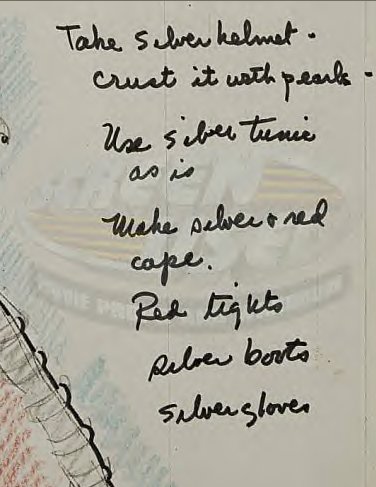 Take silver helmet -
crust it with pearls -
Use silver tunic
as is
Make silver & red
cape.
Red tights
silver boots
silver gloves